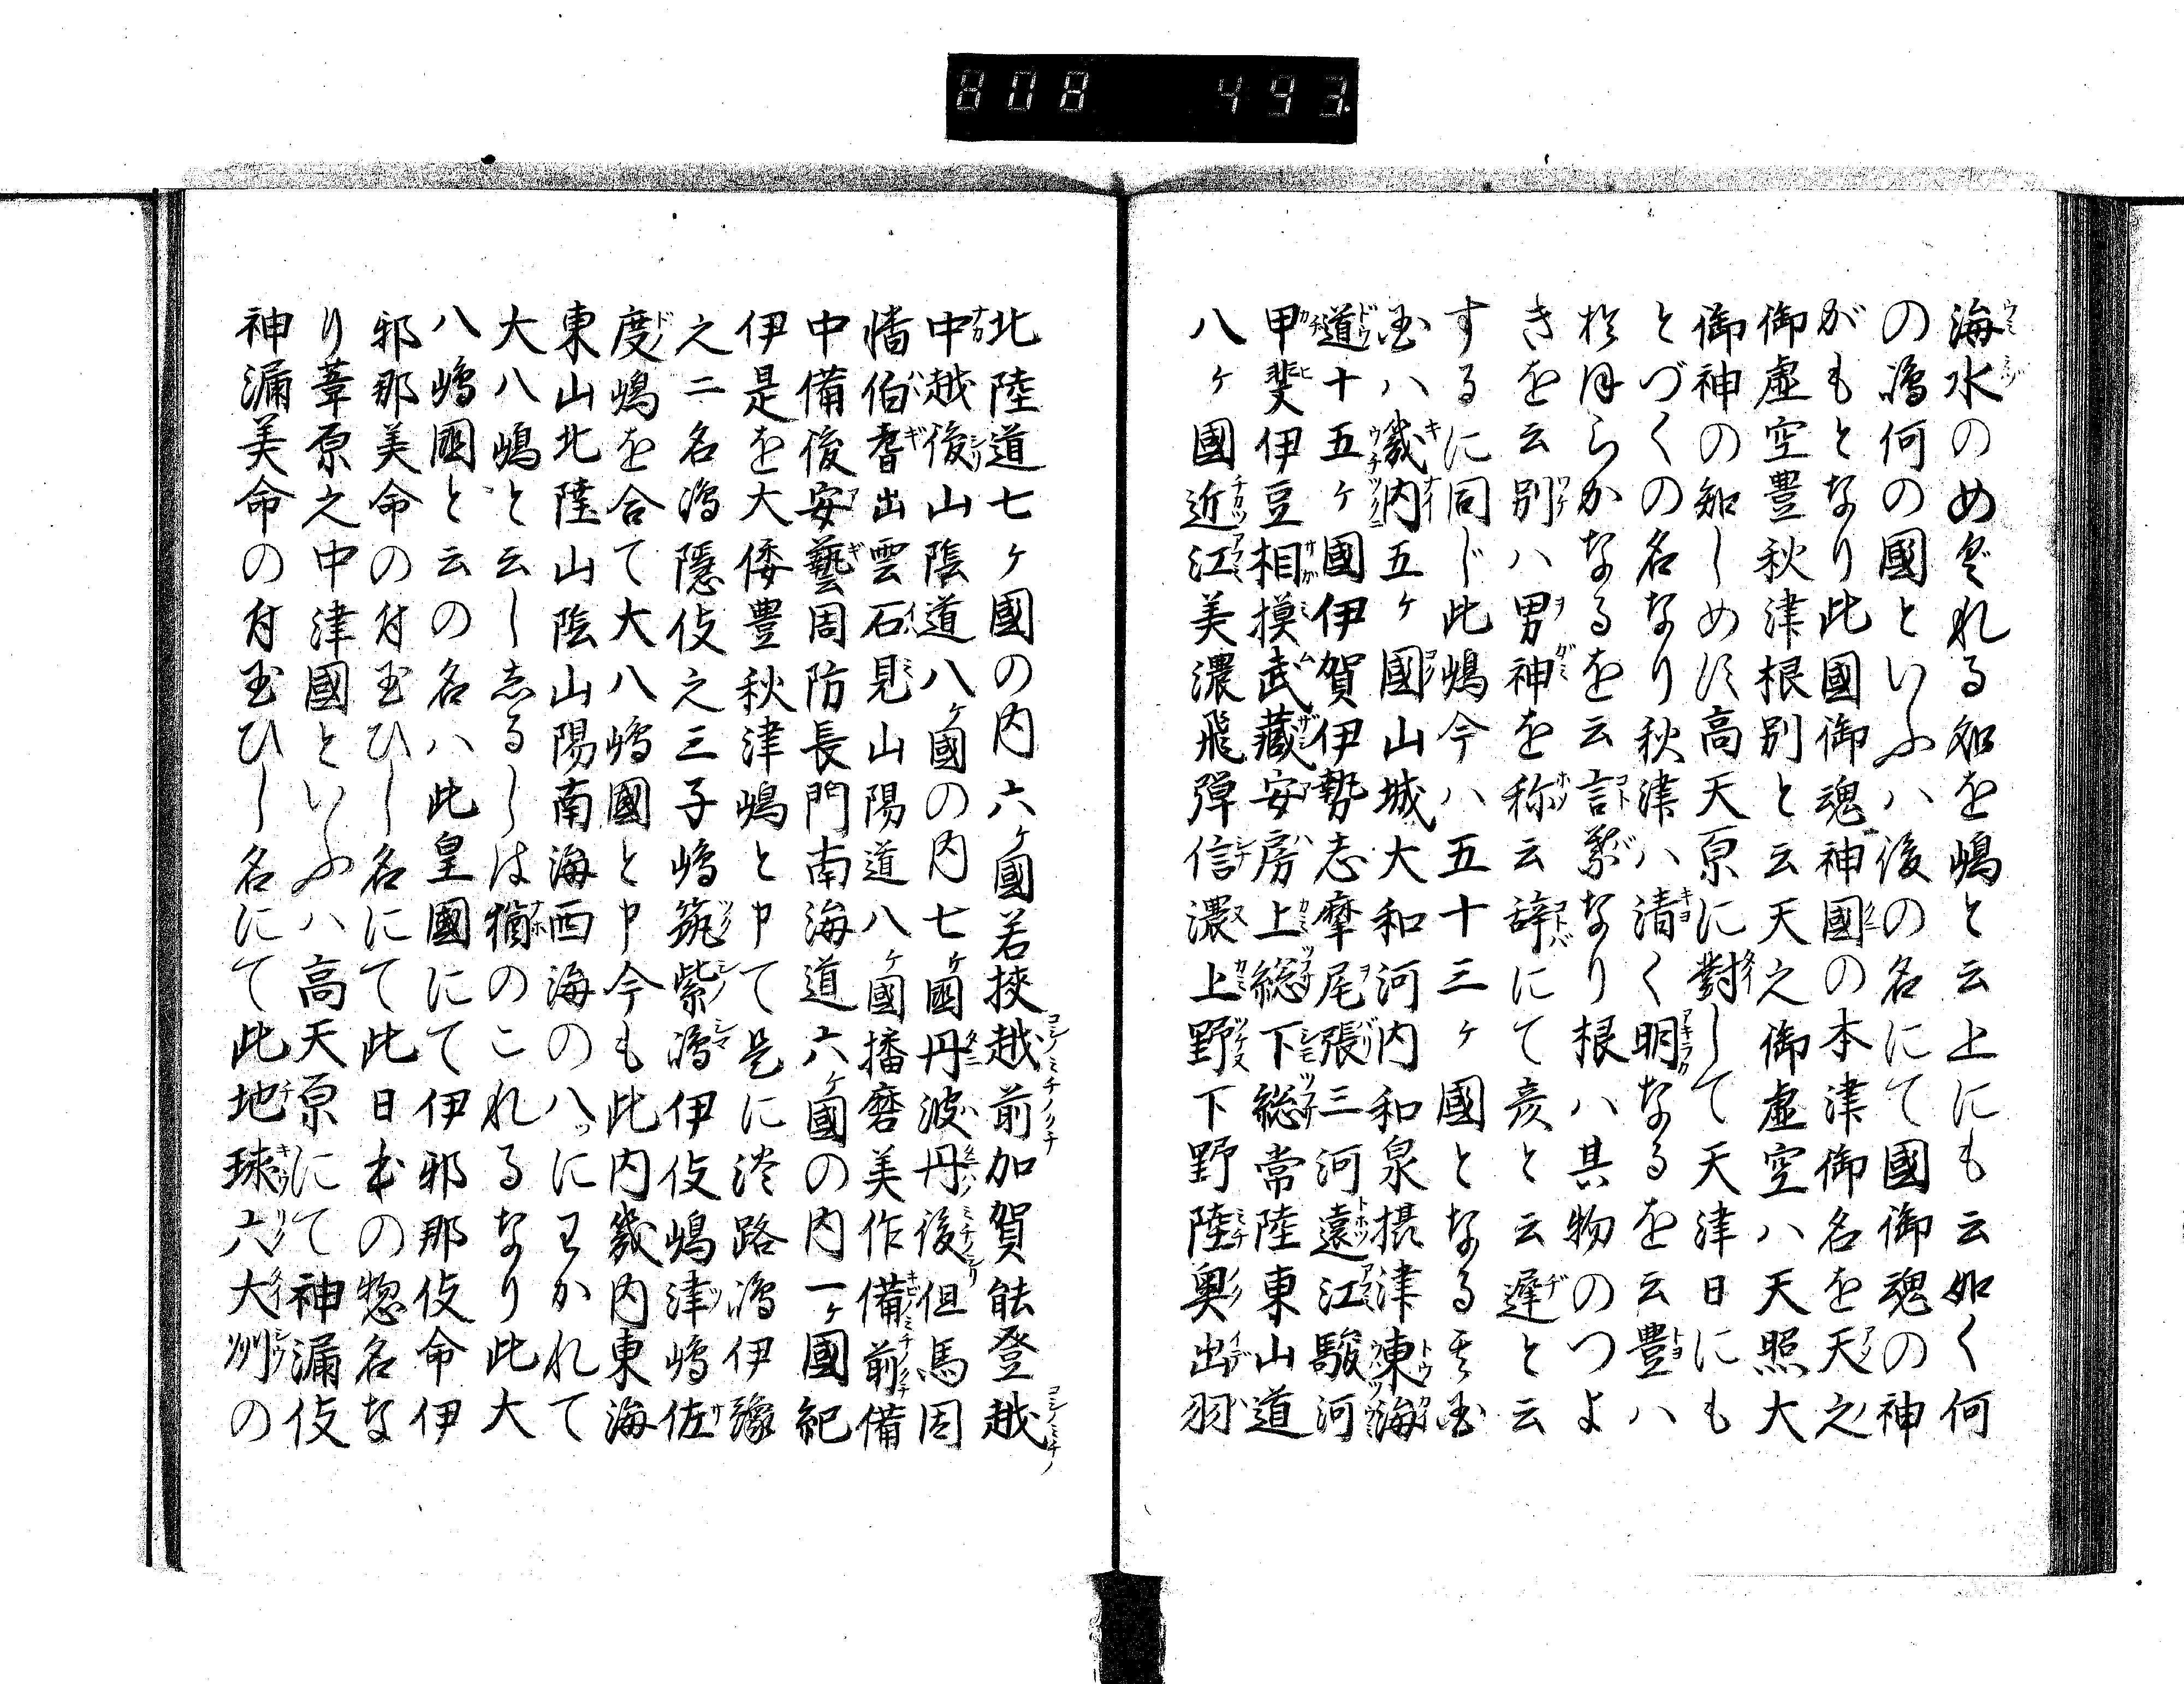 808 493
海水のめぐれる処を嶋と云上にも云如く何
の嶋何の國といふハ後の名にて國御魂の神
がもとなり此國御魂神國の本津御名を天之
御虚空豊秋津根別と云天之御虚空ハ天照大
御神の知しめす高天原に對して天津日にも
とづくの名なり秋津ハ清く明なるを云豊ハ
おほらかなるを云言䋆なり根ハ其物のつよ
きを云別ハ男神を称云辞にて彦と云遅と云
するに同じ此嶋今ハ五十三ヶ國となる其国
国ハ畿内五ヶ國山城大和河内和泉摂津東海
道十五ヶ國伊賀伊勢志摩尾張三河遠江駿河
甲斐伊豆相摸武蔵安房上総下総常陸東山道
八ヶ國近江美濃飛弾信濃上野下野陸奥出羽
北陸道七ヶ國の内六ヶ國若狭越前加賀能登越
中越後山陰道八ヶ國の内七ヶ國丹波丹後但馬因
幡伯耆出雲石見山陽道八ヶ國播磨美作備前備
中備後安藝周防長門南海道六ヶ國の内一ヶ國紀
伊是を大倭豊秋津嶋と申て是に淡路嶋伊豫
之二名嶋隠伎之三子嶋筑紫嶋伊伎嶋津嶋佐
度嶋を合て大八嶋國と申今も此内畿内東海
東山北陸山陰山陽南海西海の八ッにわかれて
大八嶋と云ししるしは猶のこれるなり此大
八嶋國と云の名ハ此皇國にて伊邪那伎命伊
邪那美命の付玉ひし名にて此日本の惣名な
り葦原之中津國といふハ高天原にて神漏伎
神漏美命の付玉ひし名にて此地球六大洲の